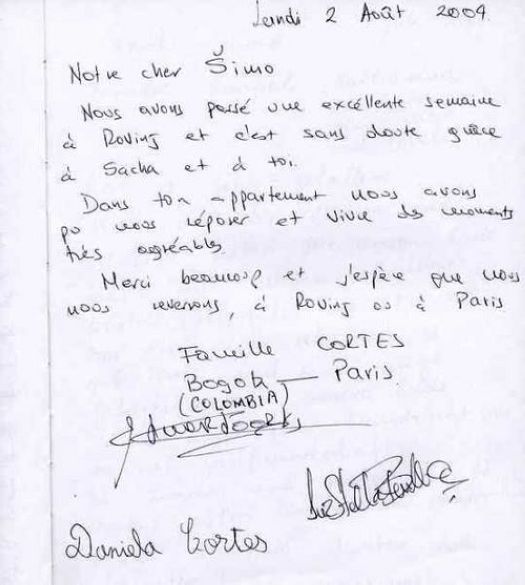 Lundi 2 Août 2004.
Notre cher Šimo
Nous avons passé une excéllente semaine
à Rovinj et c'est sans doute grâce
à Sacha et à toi.
Dans ton appartement nous avons
pu nous réposer et vivre des moments
très agréables
Merci beaucoup et j'espère que nous
nous reverrons, à Rovinj ou à Paris
Famille CORTES
Bogota — Paris.
(COLOMBIA)
Daniela Cortes